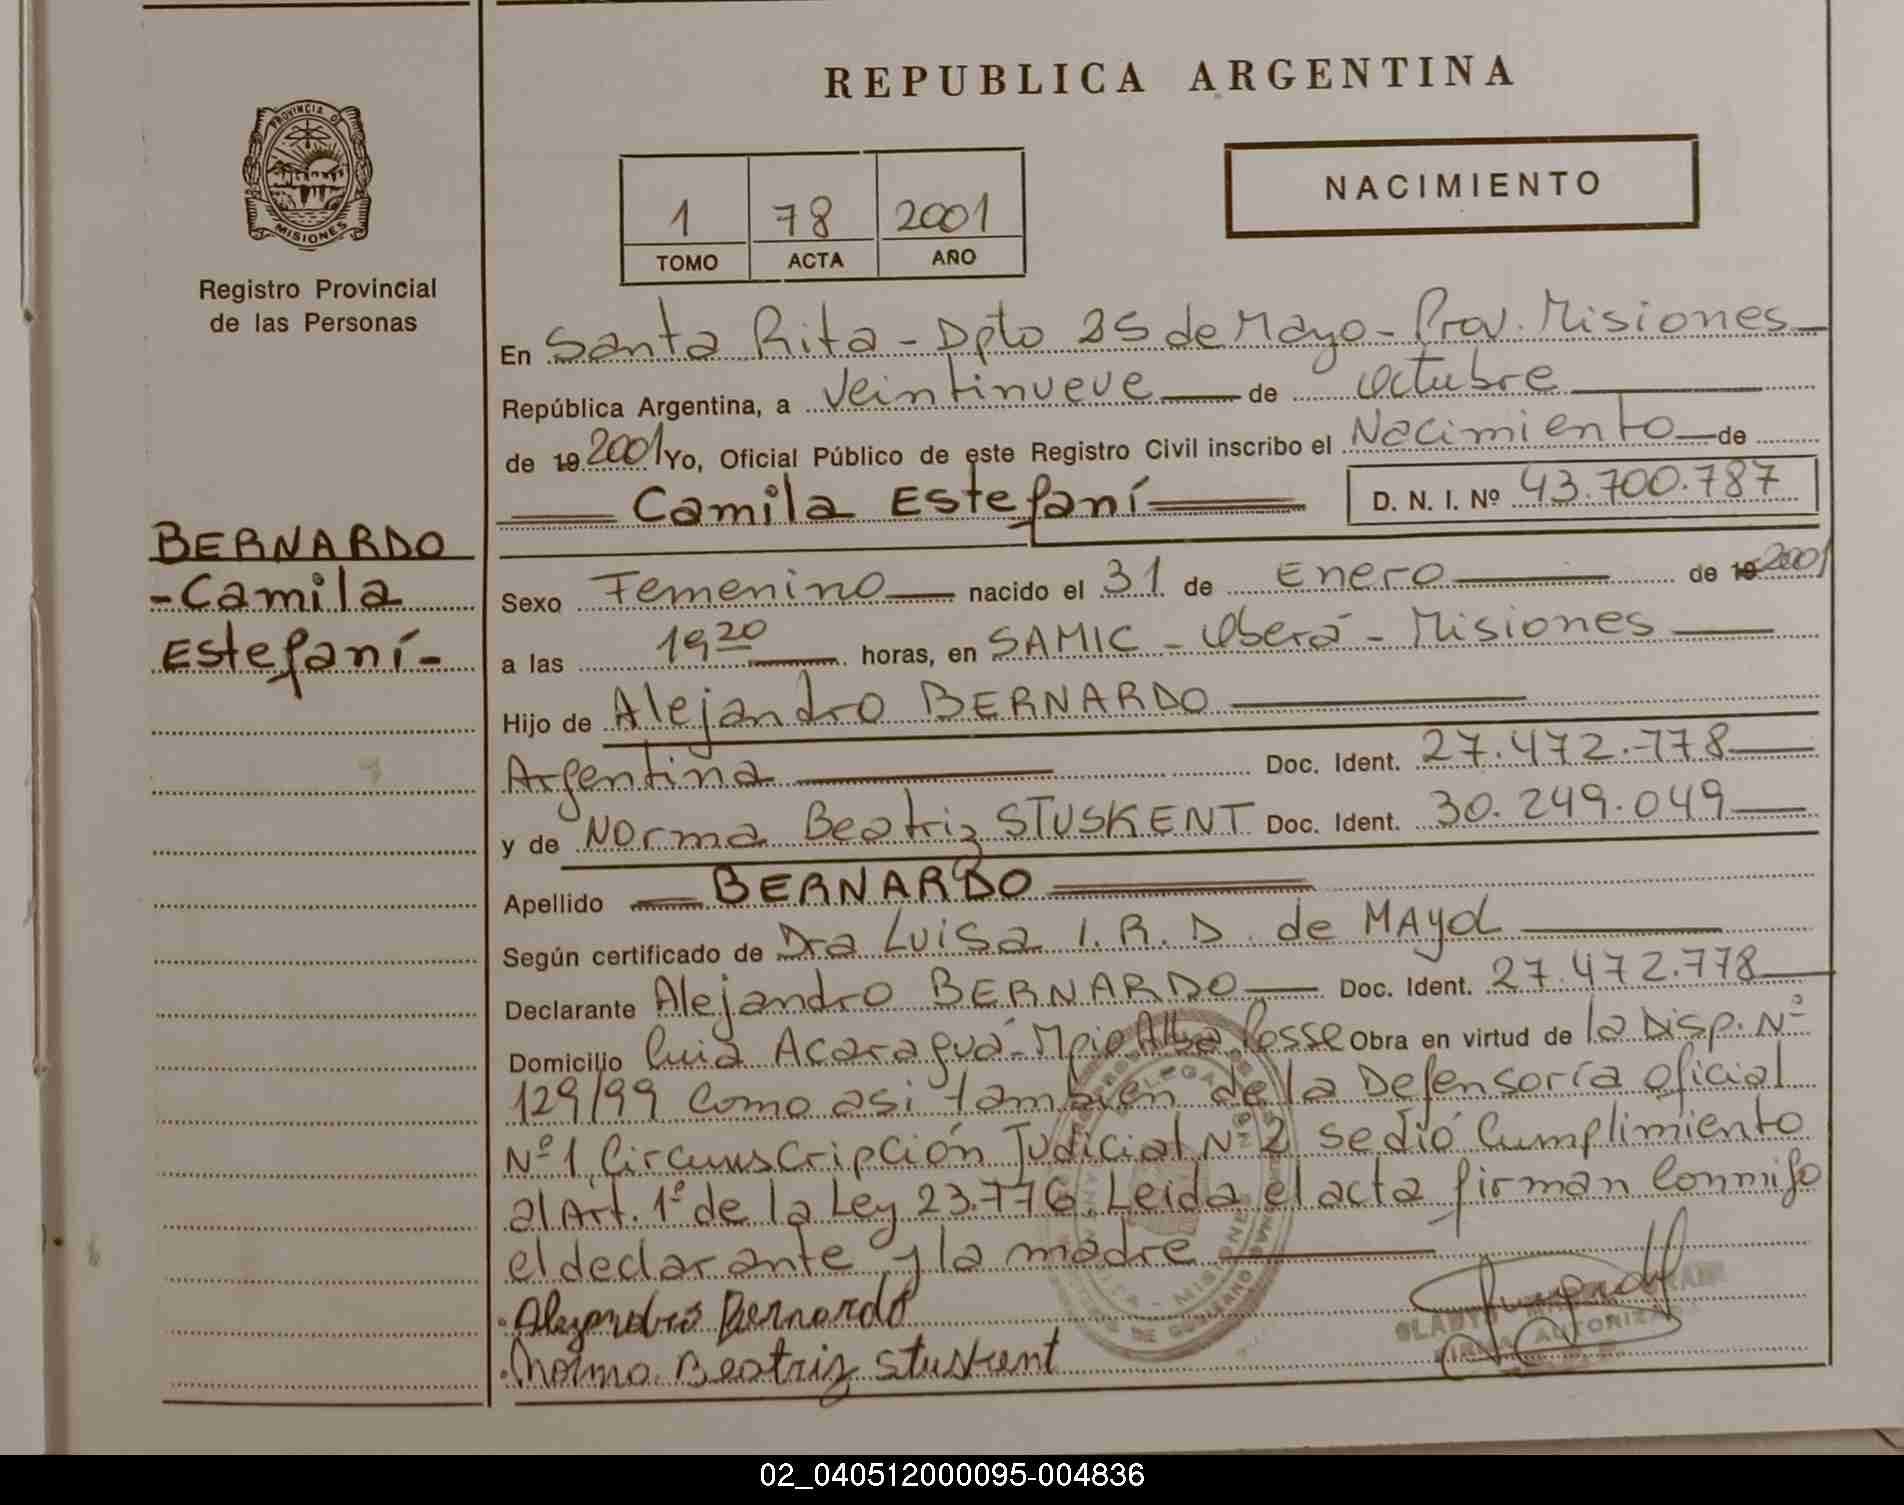 REPUBLICA ARGENTINA
PROVINCIA DE
MISIONES
Registro Provincial
de las Personas
BERNARDO
-Camila
Estefaní-
NACIMIENTO
1 78 2001
TOMO ACTA AÑO
En Santa Rita - Dpto 25 de Mayo - Prov. Misiones
República Argentina, a veintinueve de octubre
de 19 2001 Yo, Oficial Público de este Registro Civil inscribo el Nacimiento de
Camila Estefaní D. N. I. Nº 43.700.787
Sexo Femenino nacido el 31 de Enero de 19 2001
a las 19 20 horas, en SAMIC - Oberá - Misiones
Hijo de Alejandro BERNARDO
Argentina Doc. Ident. 27.472.778
y de Norma Beatriz STUSKENT Doc. Ident. 30.249.049
Apellido BERNARDO
Según certificado de Dra Luisa I. R. D. de MAYOL
Declarante Alejandro BERNARDO Doc. Ident. 27.472.778
Domicilio Cuia Acaraguá - Mpio Alba Posse Obra en virtud de la Disp. Nº
129/99 como asi tambien de la Defensoría oficial
Nº 1 Circunscripción Judicial Nº 2 se dió Cumplimiento
al Art. 1º de la Ley 23.776. Leida el acta firman Conmigo
el declarante y la madre
Alejandro Bernardo
Norma Beatriz Stuskent
GLADYS
FIRMA AUTORIZADA
02_040512000095-004836